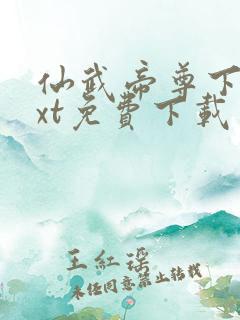 仙武帝尊下
xt免費下載
王紅瑶
未经同意禁止转载